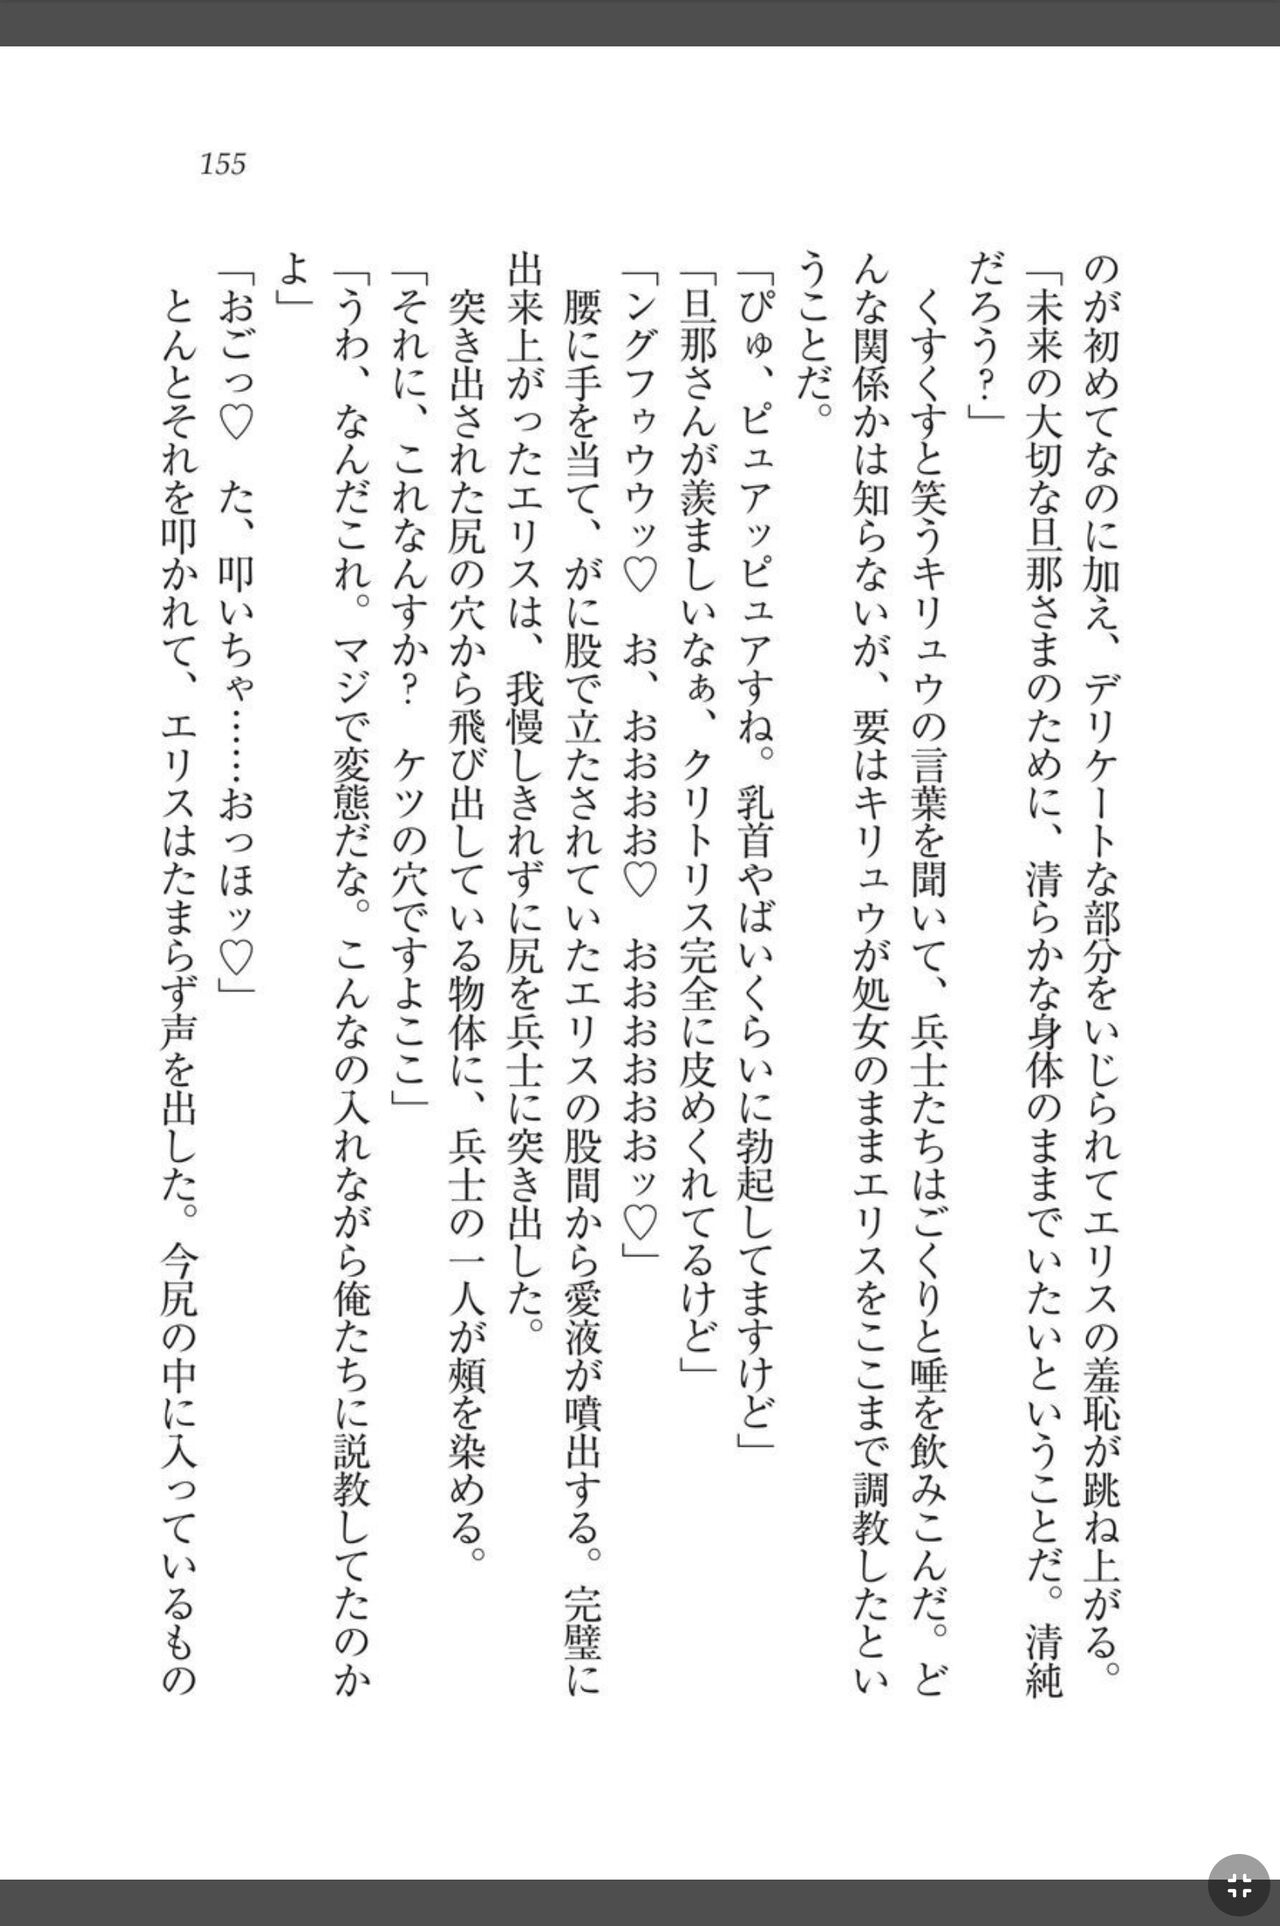 155
のが初めてなのに加え、デリケートな部分をいじられてエリスの羞恥が跳ね上がる。
「未来の大切な旦那さまのために、清らかな身体のままでいたいということだ。清純
だろう？」
くすくすと笑うキリュウの言葉を聞いて、兵士たちはごくりと唾を飲みこんだ。ど
んな関係かは知らないが、要はキリュウが処女のままエリスをここまで調教したとい
うことだ。
「ぴゅ、ピュアッピュアすね。乳首やばいくらいに勃起してますけど」
「旦那さんが羨ましいなぁ、クリトリス完全に皮めくれてるけど」
「ングフゥウウッ♡　お、おおおお♡　おおおおおおッ♡」
腰に手を当て、がに股で立たされていたエリスの股間から愛液が噴出する。完璧に
出来上がったエリスは、我慢しきれずに尻を兵士に突き出した。
突き出された尻の穴から飛び出している物体に、兵士の一人が頬を染める。
「それに、これなんすか？　ケツの穴ですよここ」
「うわ、なんだこれ。マジで変態だな。こんなの入れながら俺たちに説教してたのか
よ」
「おごっ♡　た、叩いちゃ……おっほッ♡」
とんとそれを叩かれて、エリスはたまらず声を出した。今尻の中に入っているもの